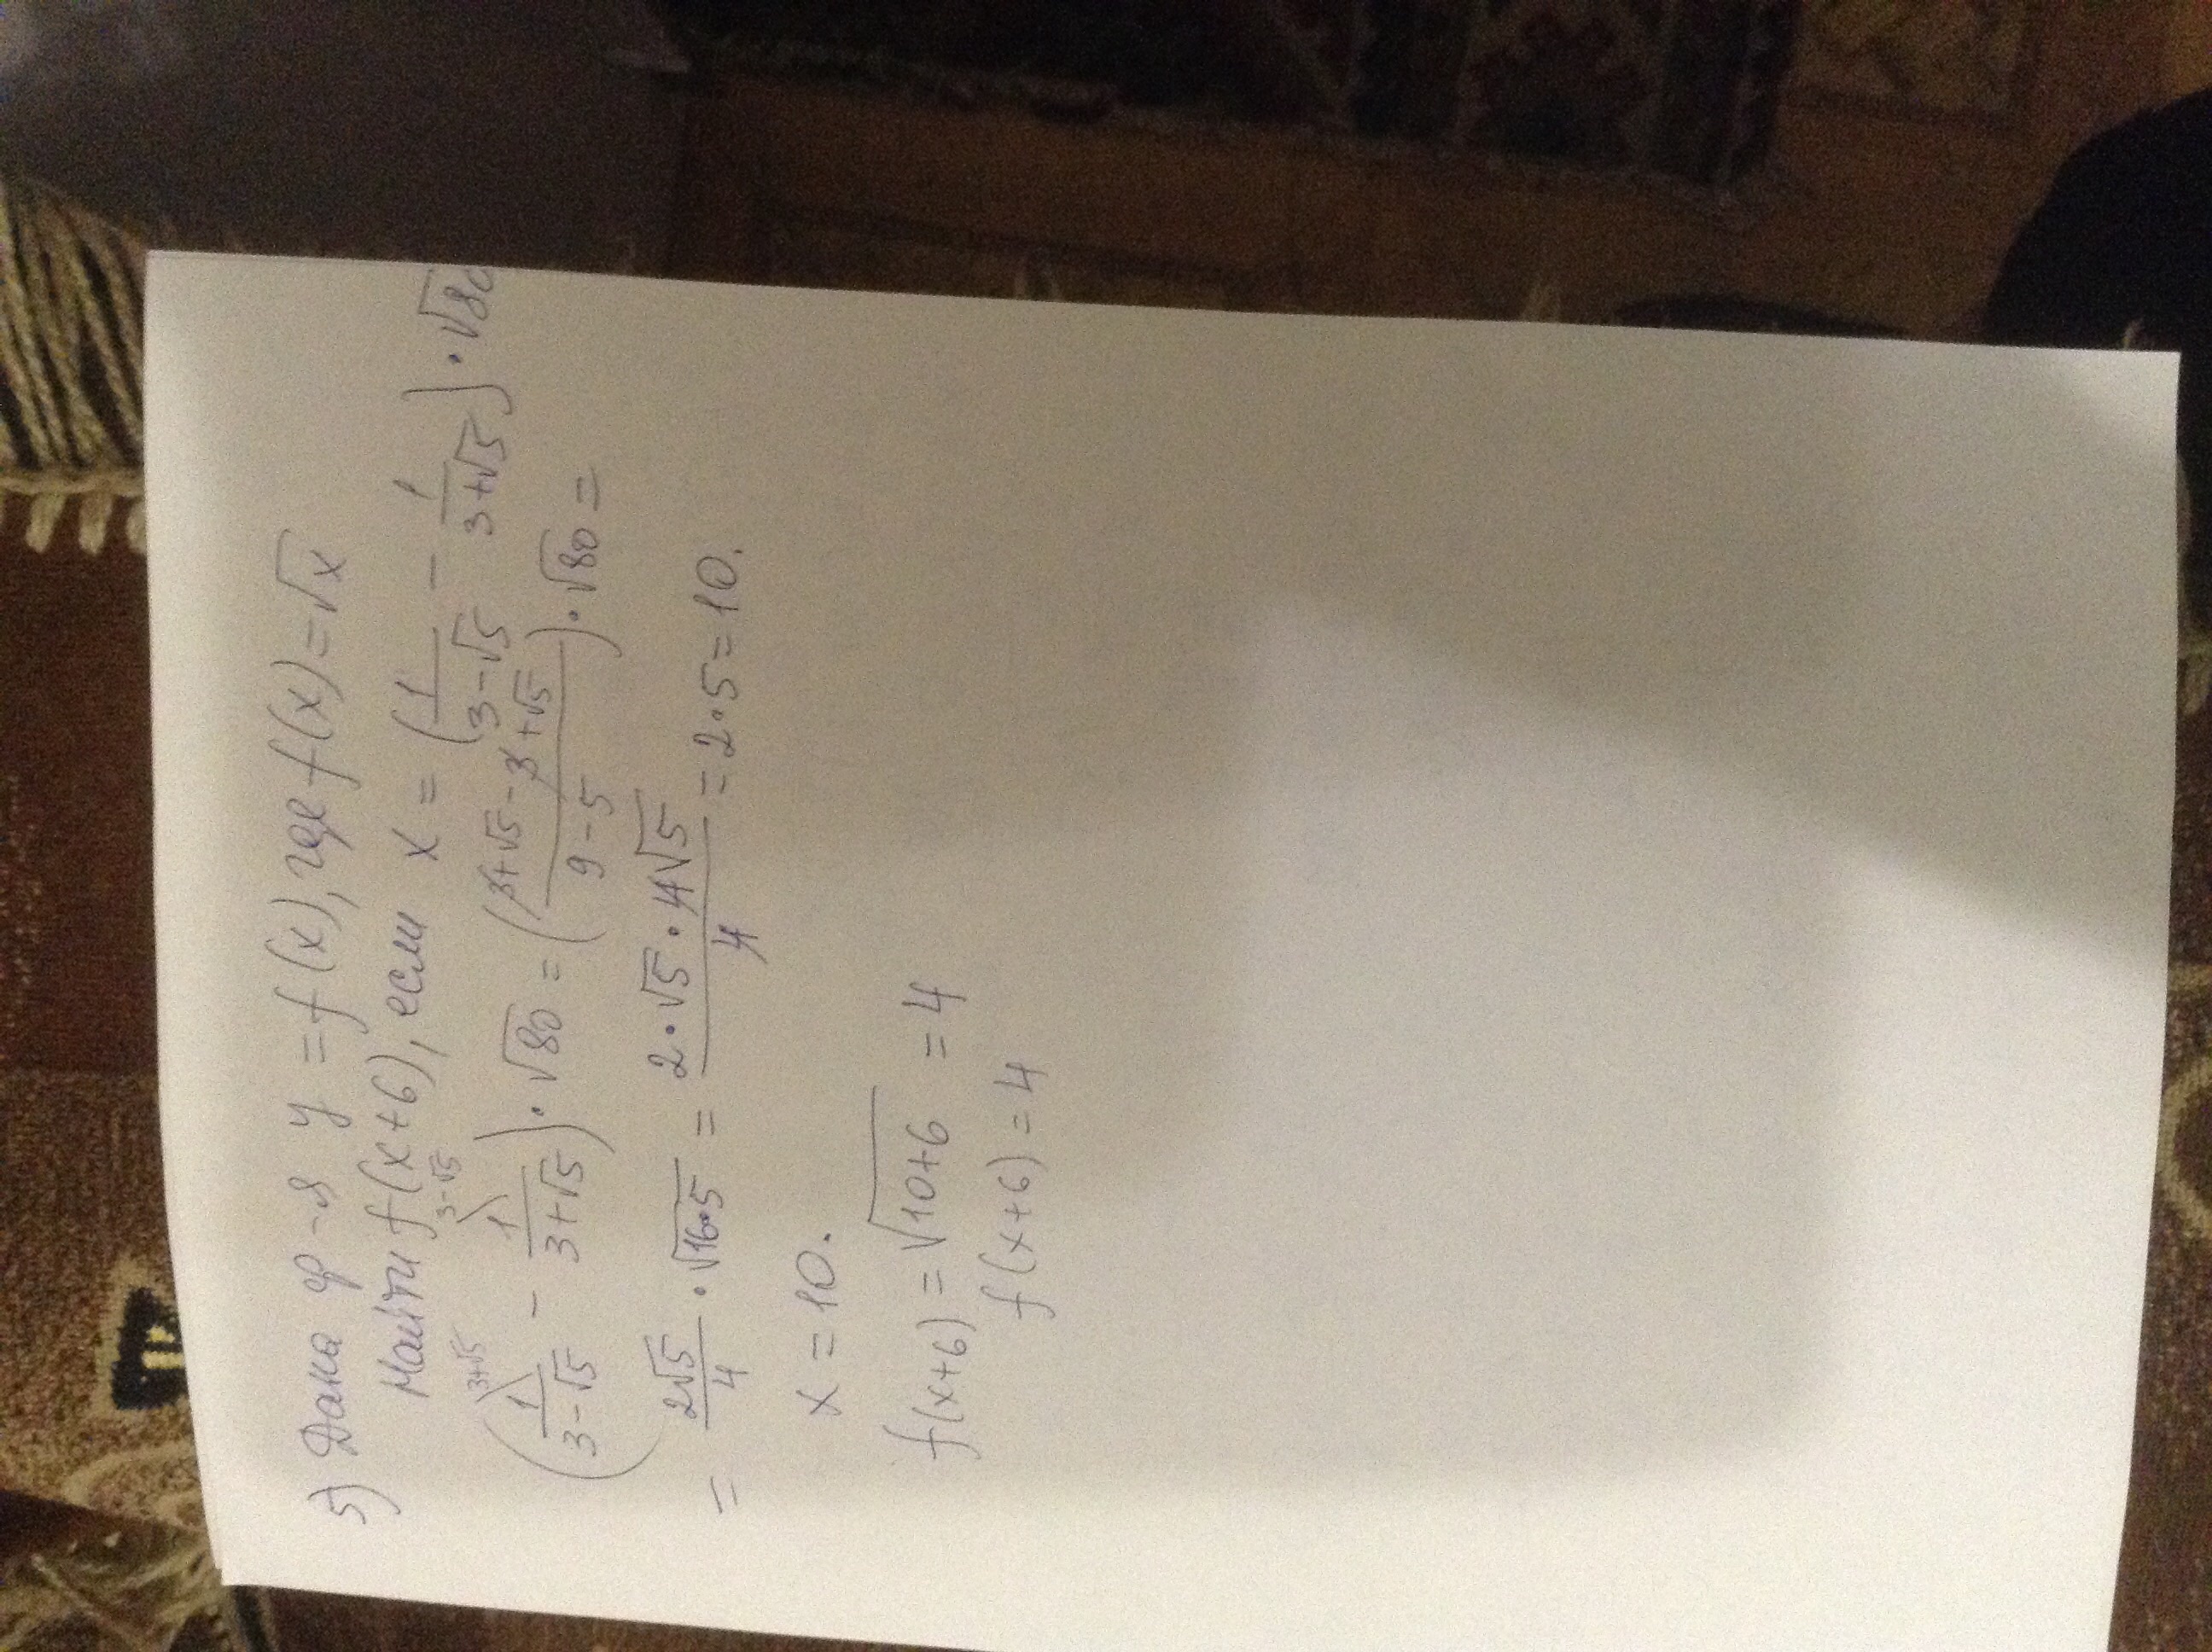 5) Дана ф-я y = f(x), где f(x) = √x
Найти f(x+6), если x = (1/(3-√5) - 1/(3+√5)) · √80
(1/(3-√5) ^(3+√5) - 1/(3+√5) ^(3-√5)) · √80 = ((3+√5-3+√5)/(9-5)) · √80 =
= 2√5/4 · √16·5 = (2·√5·4√5)/4 = 2·5 = 10.
x = 10.
f(x+6) = √10+6 = 4
f(x+6) = 4